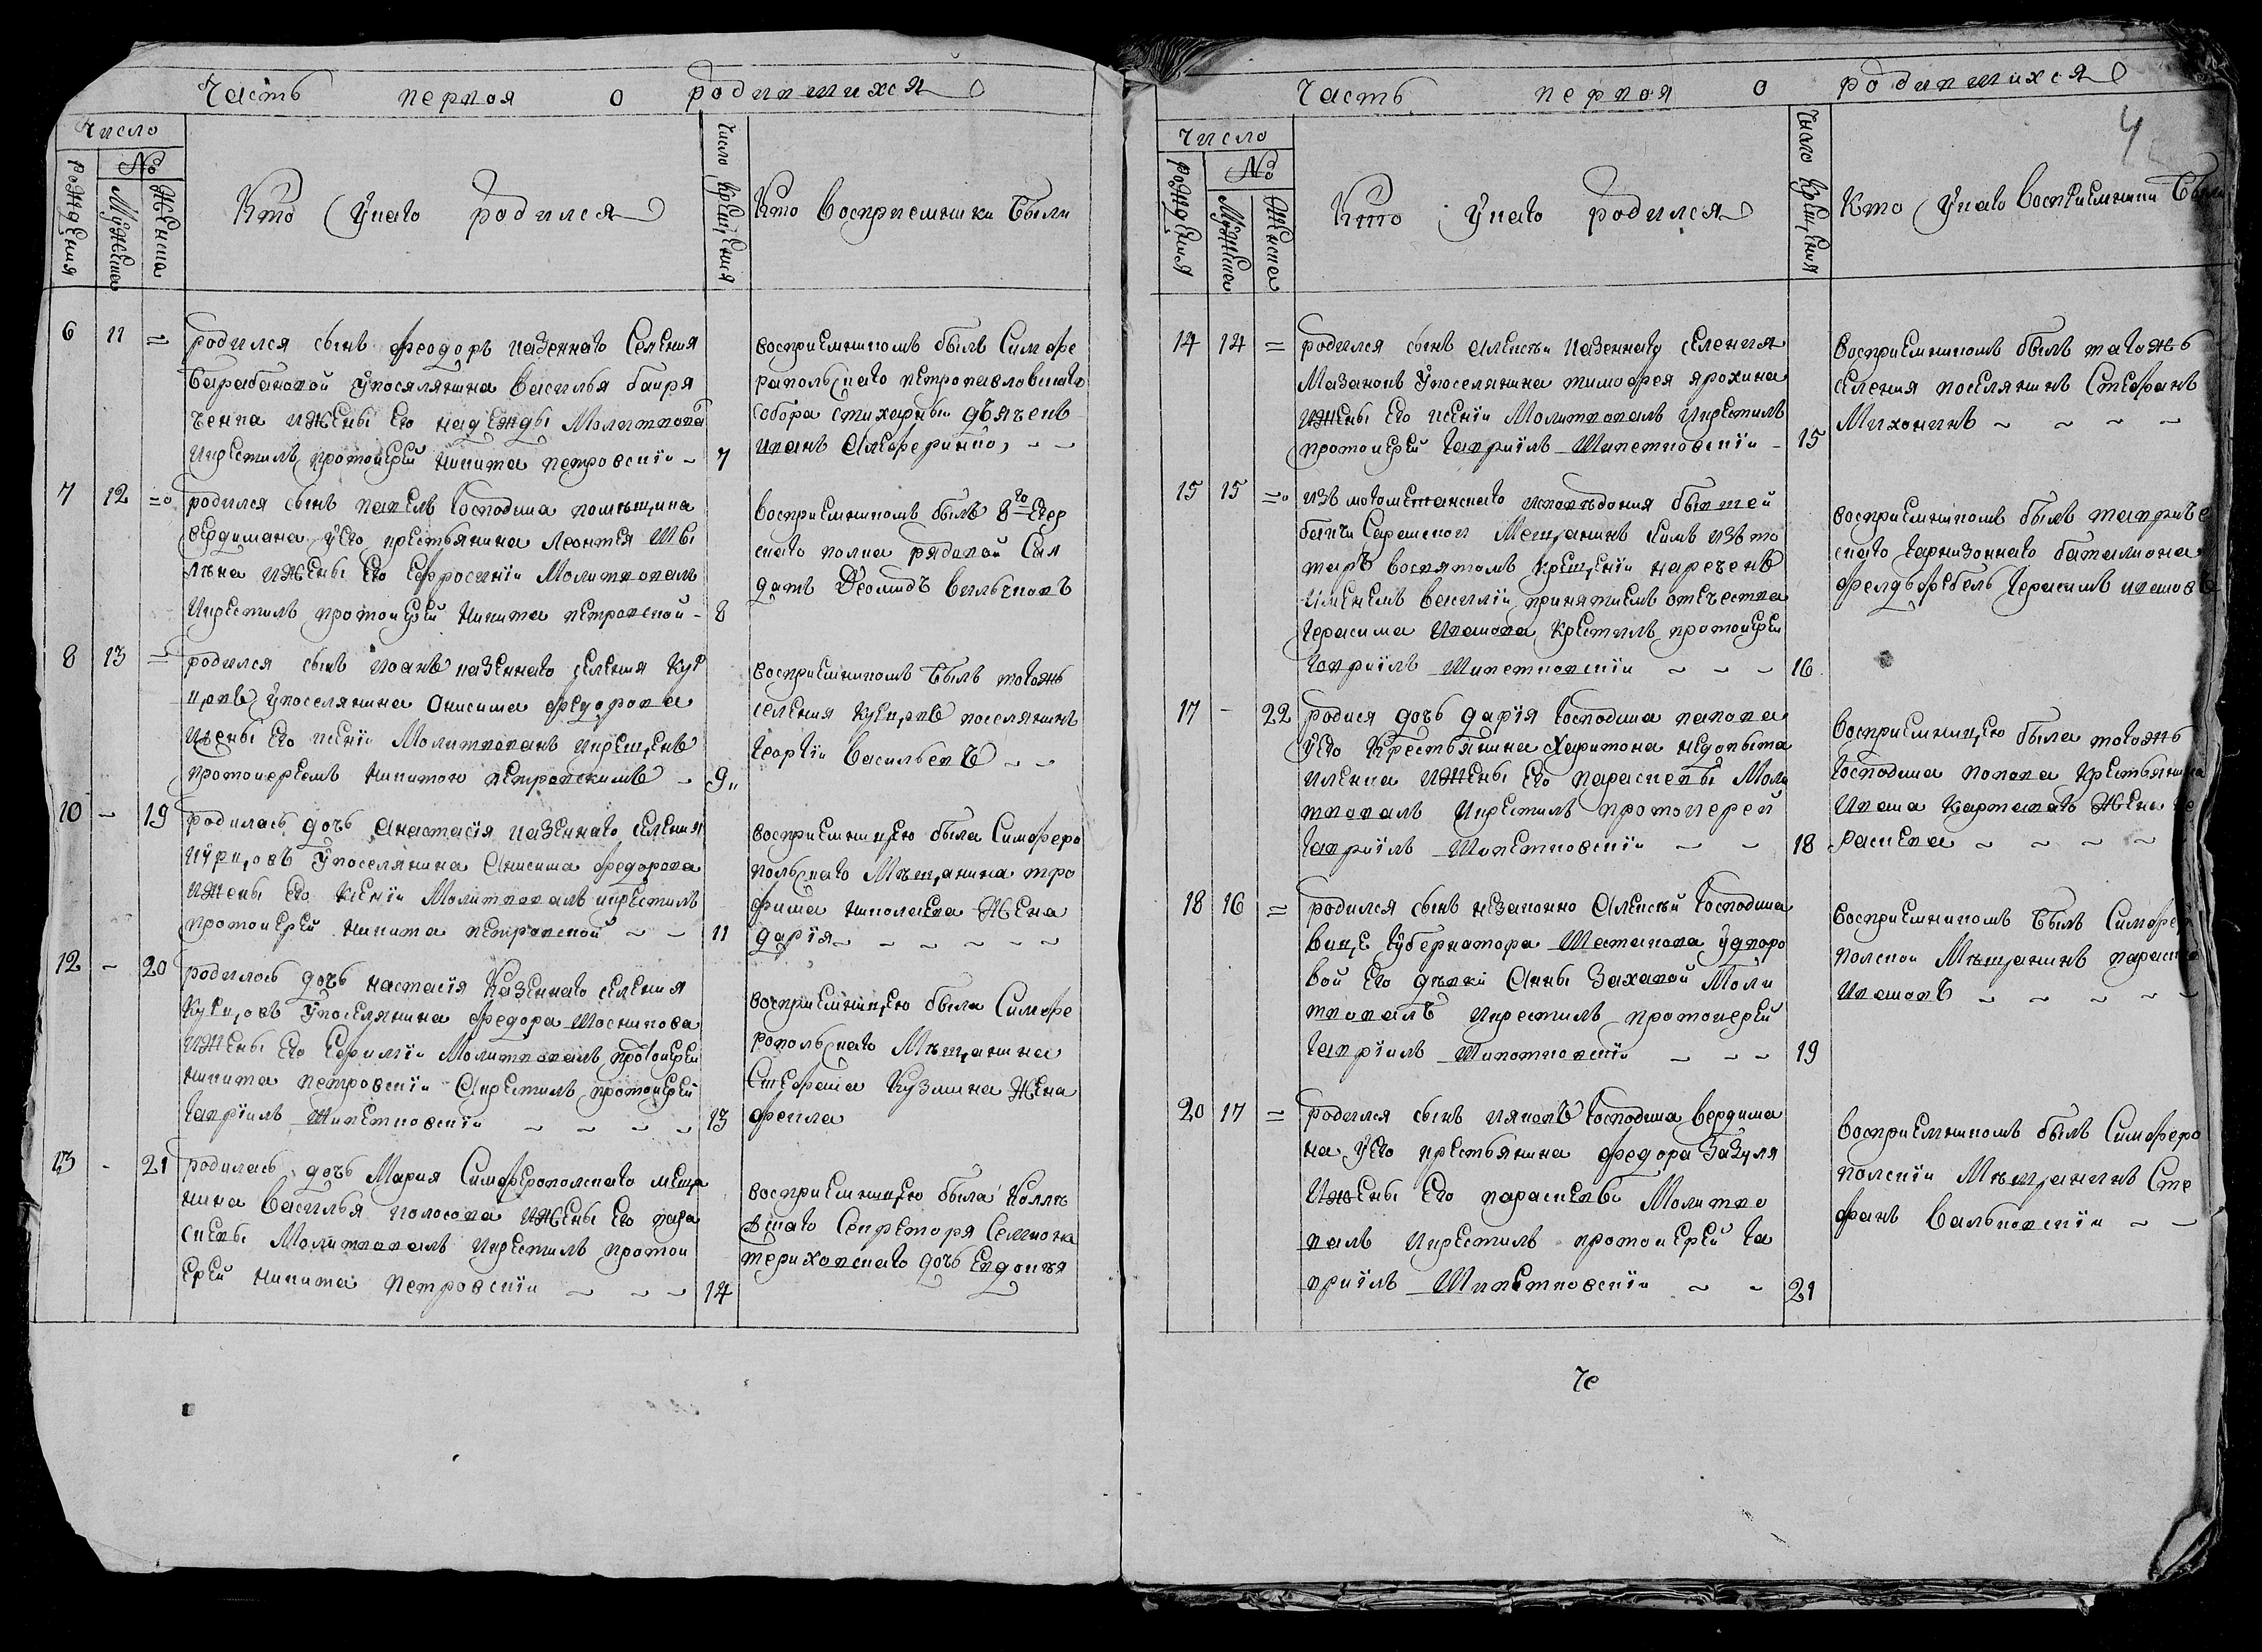 Часть первоя о родившихся
Число
рожденія
№
Мужеска
Женска
Кто у каго родился
Число крещенія
Кто восприемники были
6 11 =
родился сынъ Феодоръ казеннаго Селения
Барабановой у поселянина Василья
ченка и жены его надежды Молитвова
и крестилъ протоиерей никита петровскій 7
восприемникомъ былъ Симфе
раполькаго петропавловскаго
собора стихарный дьячекъ
иванъ
7 12 =
родился сынъ павелъ Господина помѣщика
вердимана у его крестьянина Леонтея
и жены его ефросиніи Молитвовалъ
и крестилъ протоиерей никита петровской 8
восприемникомъ былъ 8го Егер
скаго полка рядовой Сал
датъ
8 13 =
родился сынъ иоанъ казеннаго селения Кур
цовъ у поселянина Онисима федорова
и жены его ксеніи Молитвованъ и крещенъ
протоиереемъ никитою петровскимъ 9
восприемникомъ былъ тогожъ
селения курцовъ поселянинъ
Георгіи васильевъ
10 - 19
родилась дочь Анастасія казеннаго селения
курцовъ у поселянина Онисима федорова
и жены его ксеніи Молитвовалъ и крестилъ
протоиерей никита петровской 11
восприемницею была Симферо
польскаго Мѣщанина тро
фима николаева Жена
дарія
12 - 20
родилось дочь настасія Казеннаго селения
Курцовъ у поселянина федора
и жены его Молитвовалъ протоиереи
никита петровскіи а крестилъ протоиерей
Гавріилъ Шипетновскіи 13
восприемницею была Симфе
ропольскаго Мѣщанина
Стефана Кузмина Жена
фекла
13 - 21
родилась дочь Мария Симферополскаго меща
нина Василья колосова и жены его пара
скевы Молитвовалъ и крестилъ протои
ерей никита петровскіи 14
восприемницею была колле
скаго Секреторя Семиона
териховскаго дочь Евдокия
Часть первоя о родившихся
4
Число
рожденія
№
Мужеска
Женска
Кто у каго родился
Число крещенія
Кто у каго восприемники были
14 14 =
родился сынъ алексѣи казеннаго селения
Мазановъ у поселянина тимофея ярохина
и жены его ксеніи Молитвовалъ и крестилъ
протоиерей Гавриілъ Шипетновскіи 15
восприемникомъ былъ тагожъ
селения поселянинъ Стефанъ
Михонинъ
15 15 =
изъ могометанскаго исповѣдания бывшей
Мещанинъ
татаръ во святомъ крещеніи нареченъ
именемъ василіи принятиемъ отечества
Герасима ивашова крестилъ протоиереи
Гавриілъ Шипетновскіи 16
восприемникомъ былъ тавриче
скаго Гарнизоннаго баталиона
фелдьфебель Герасимъ ивашовъ
17 - 22
родися дочь дарія Господина папова
у его Крестьянина Харитона недопыта
иленка и жены его параскевы Моли
твовалъ и крестилъ протоиерей
Гавриілъ Шипетновскіи 18
восприемницею была тогожъ
Господина попова крестьянина
ивана Жена па
раскева
18 16 =
родился сынъ незаконно Алексѣй Господина
вице Губернатора Шестакова у дворо
вой его дѣвки Анны Захавой Моли
твовалъ и крестилъ протоиерей
Гавріилъ Шипетновскіи 19
восприемникомъ былъ Симферо
полской Мѣщанинъ
ивашовъ
20 17 =
родился сынъ яковъ Господина вердима
на у его крестьянина федора Зазуля
и жены его параскевы Молитво
валъ и крестилъ протоиерей Га
вриілъ Шипетновскіи 21
восприемникомъ былъ Симферо
полскіи Мѣщанинъ Сте
фанъ Вальковскіи
че